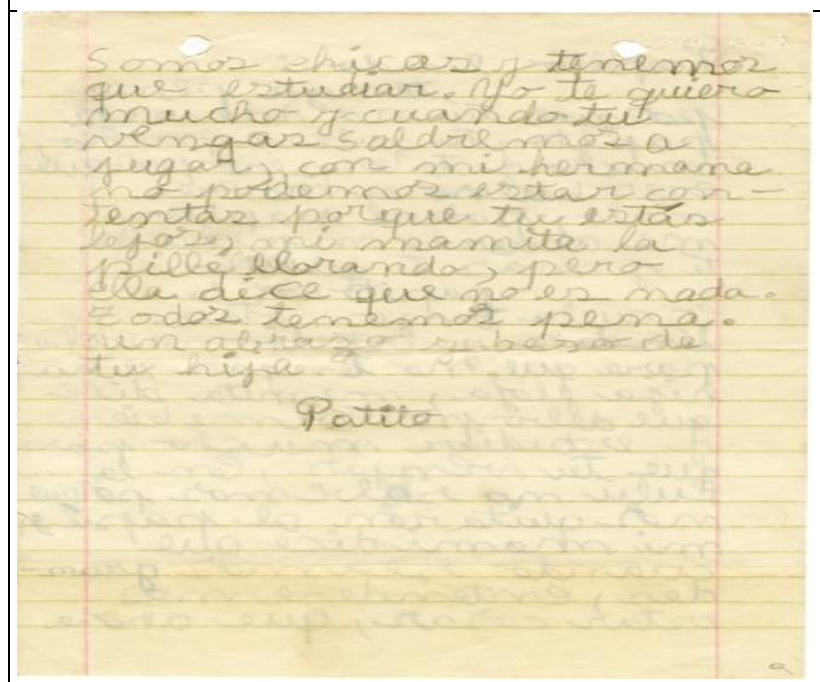 Somos chicas y tenemos
que estudiar. Yo te quiero
mucho y cuando tu
vengas saldremos a
jugar, con mi hermana
no podemos estar con-
tentas porque tu estás
lejos, mi mamita la
pillé llorando, pero
ella dice que no es nada.
Todos tenemos pena.
un abrazo y beso de
tu hija
Patito